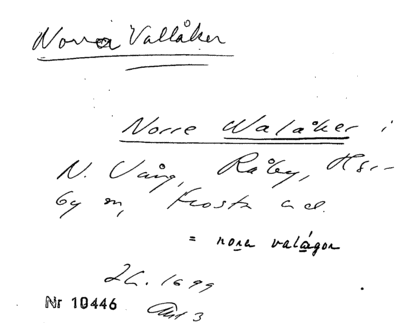 Norra Vallåker
Norre Walåker i
N. Vång, Råby, Hör-
by sn, Frosta hd.
= nora valågor
1699
Nr 10446